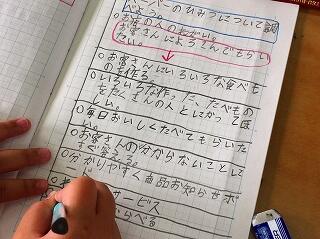 ーパーのひみつについて調
べよう。
○お客の人のねがい。
お客さんによろこんでもらい
たい。
○お客さんにいろいろな食べも
のを作る。
○いろいろな作った、たべもの
をたくさんの人とにかってほし
い。
○毎日おいしくたべてもらいた
○お客さんの分からないことして
すぐ
○分かりやすく商品お知らせボ
サービス
らべる